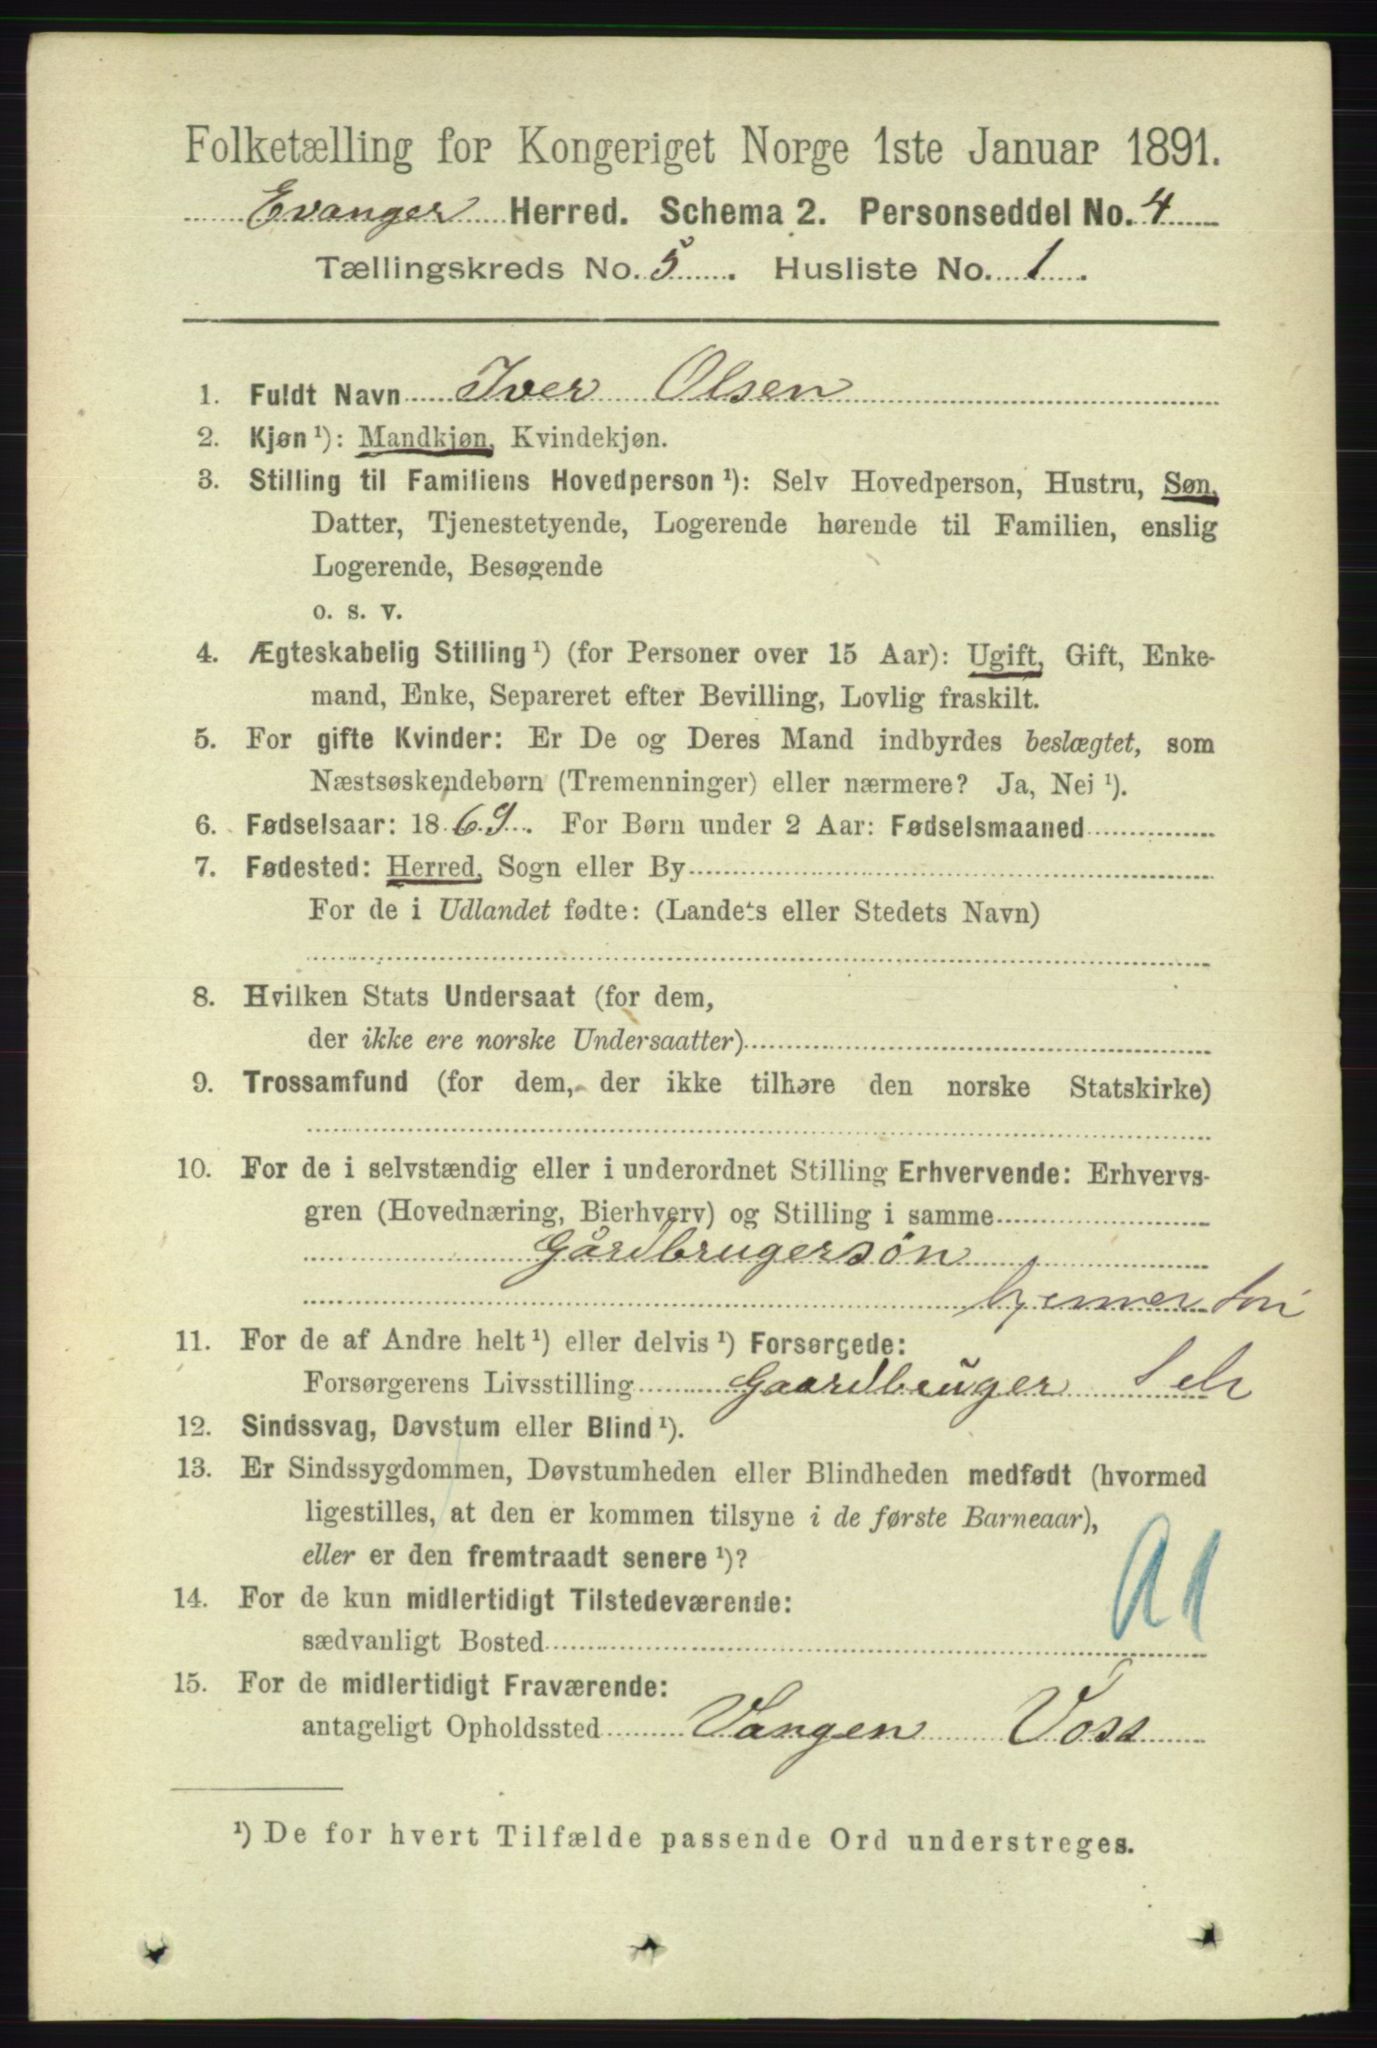 Folketælling for Kongeriget Norge 1ste Januar 1891.
Evanger Herred. Schema 2. Personseddel No. 4
Tællingskreds No. 5. Husliste No. 1.
1. Fuldt Navn Iver Olsen
2. Kjøn ¹): Mandkjøn, Kvindekjøn.
3. Stilling til Familiens Hovedperson ¹): Selv Hovedperson, Hustru, Søn,
Datter, Tjenestetyende, Logerende hørende til Familien, enslig
Logerende, Besøgende
o. s. v.
4. Ægteskabelig Stilling ¹) (for Personer over 15 Aar): Ugift, Gift, Enke-
mand, Enke, Separeret efter Bevilling, Lovlig fraskilt.
5. For gifte Kvinder: Er De og Deres Mand indbyrdes beslægtet, som
Næstsøskendebørn (Tremenninger) eller nærmere? Ja, Nei ¹).
6. Fødselsaar: 1869. For Børn under 2 Aar: Fødselsmaaned
7. Fødested: Herred, Sogn eller By
For de i Udlandet fødte: (Landets eller Stedets Navn)
8. Hvilken Stats Undersaat (for dem,
der ikke ere norske Undersaatter)
9. Trossamfund (for dem, der ikke tilhøre den norske Statskirke)
10. For de i selvstændig eller i underordnet Stilling Erhvervende: Erhvervs-
gren (Hovednæring, Bierhverv) og Stilling i samme
Gårdbrugersøn
11. For de af Andre helt ¹) eller delvis ¹) Forsørgede:
Forsørgerens Livsstilling Gaardbruger
12. Sindssvag, Døvstum eller Blind ¹).
13. Er Sindssygdommen, Døvstumheden eller Blindheden medfødt (hvormed
ligestilles, at den er kommen tilsyne i de første Barneaar),
eller er den fremtraadt senere ¹)?
14. For de kun midlertidigt Tilstedeværende:
sædvanligt Bosted
15. For de midlertidigt Fraværende:
antageligt Opholdssted Vangen Voss
¹) De for hvert Tilfælde passende Ord understreges.